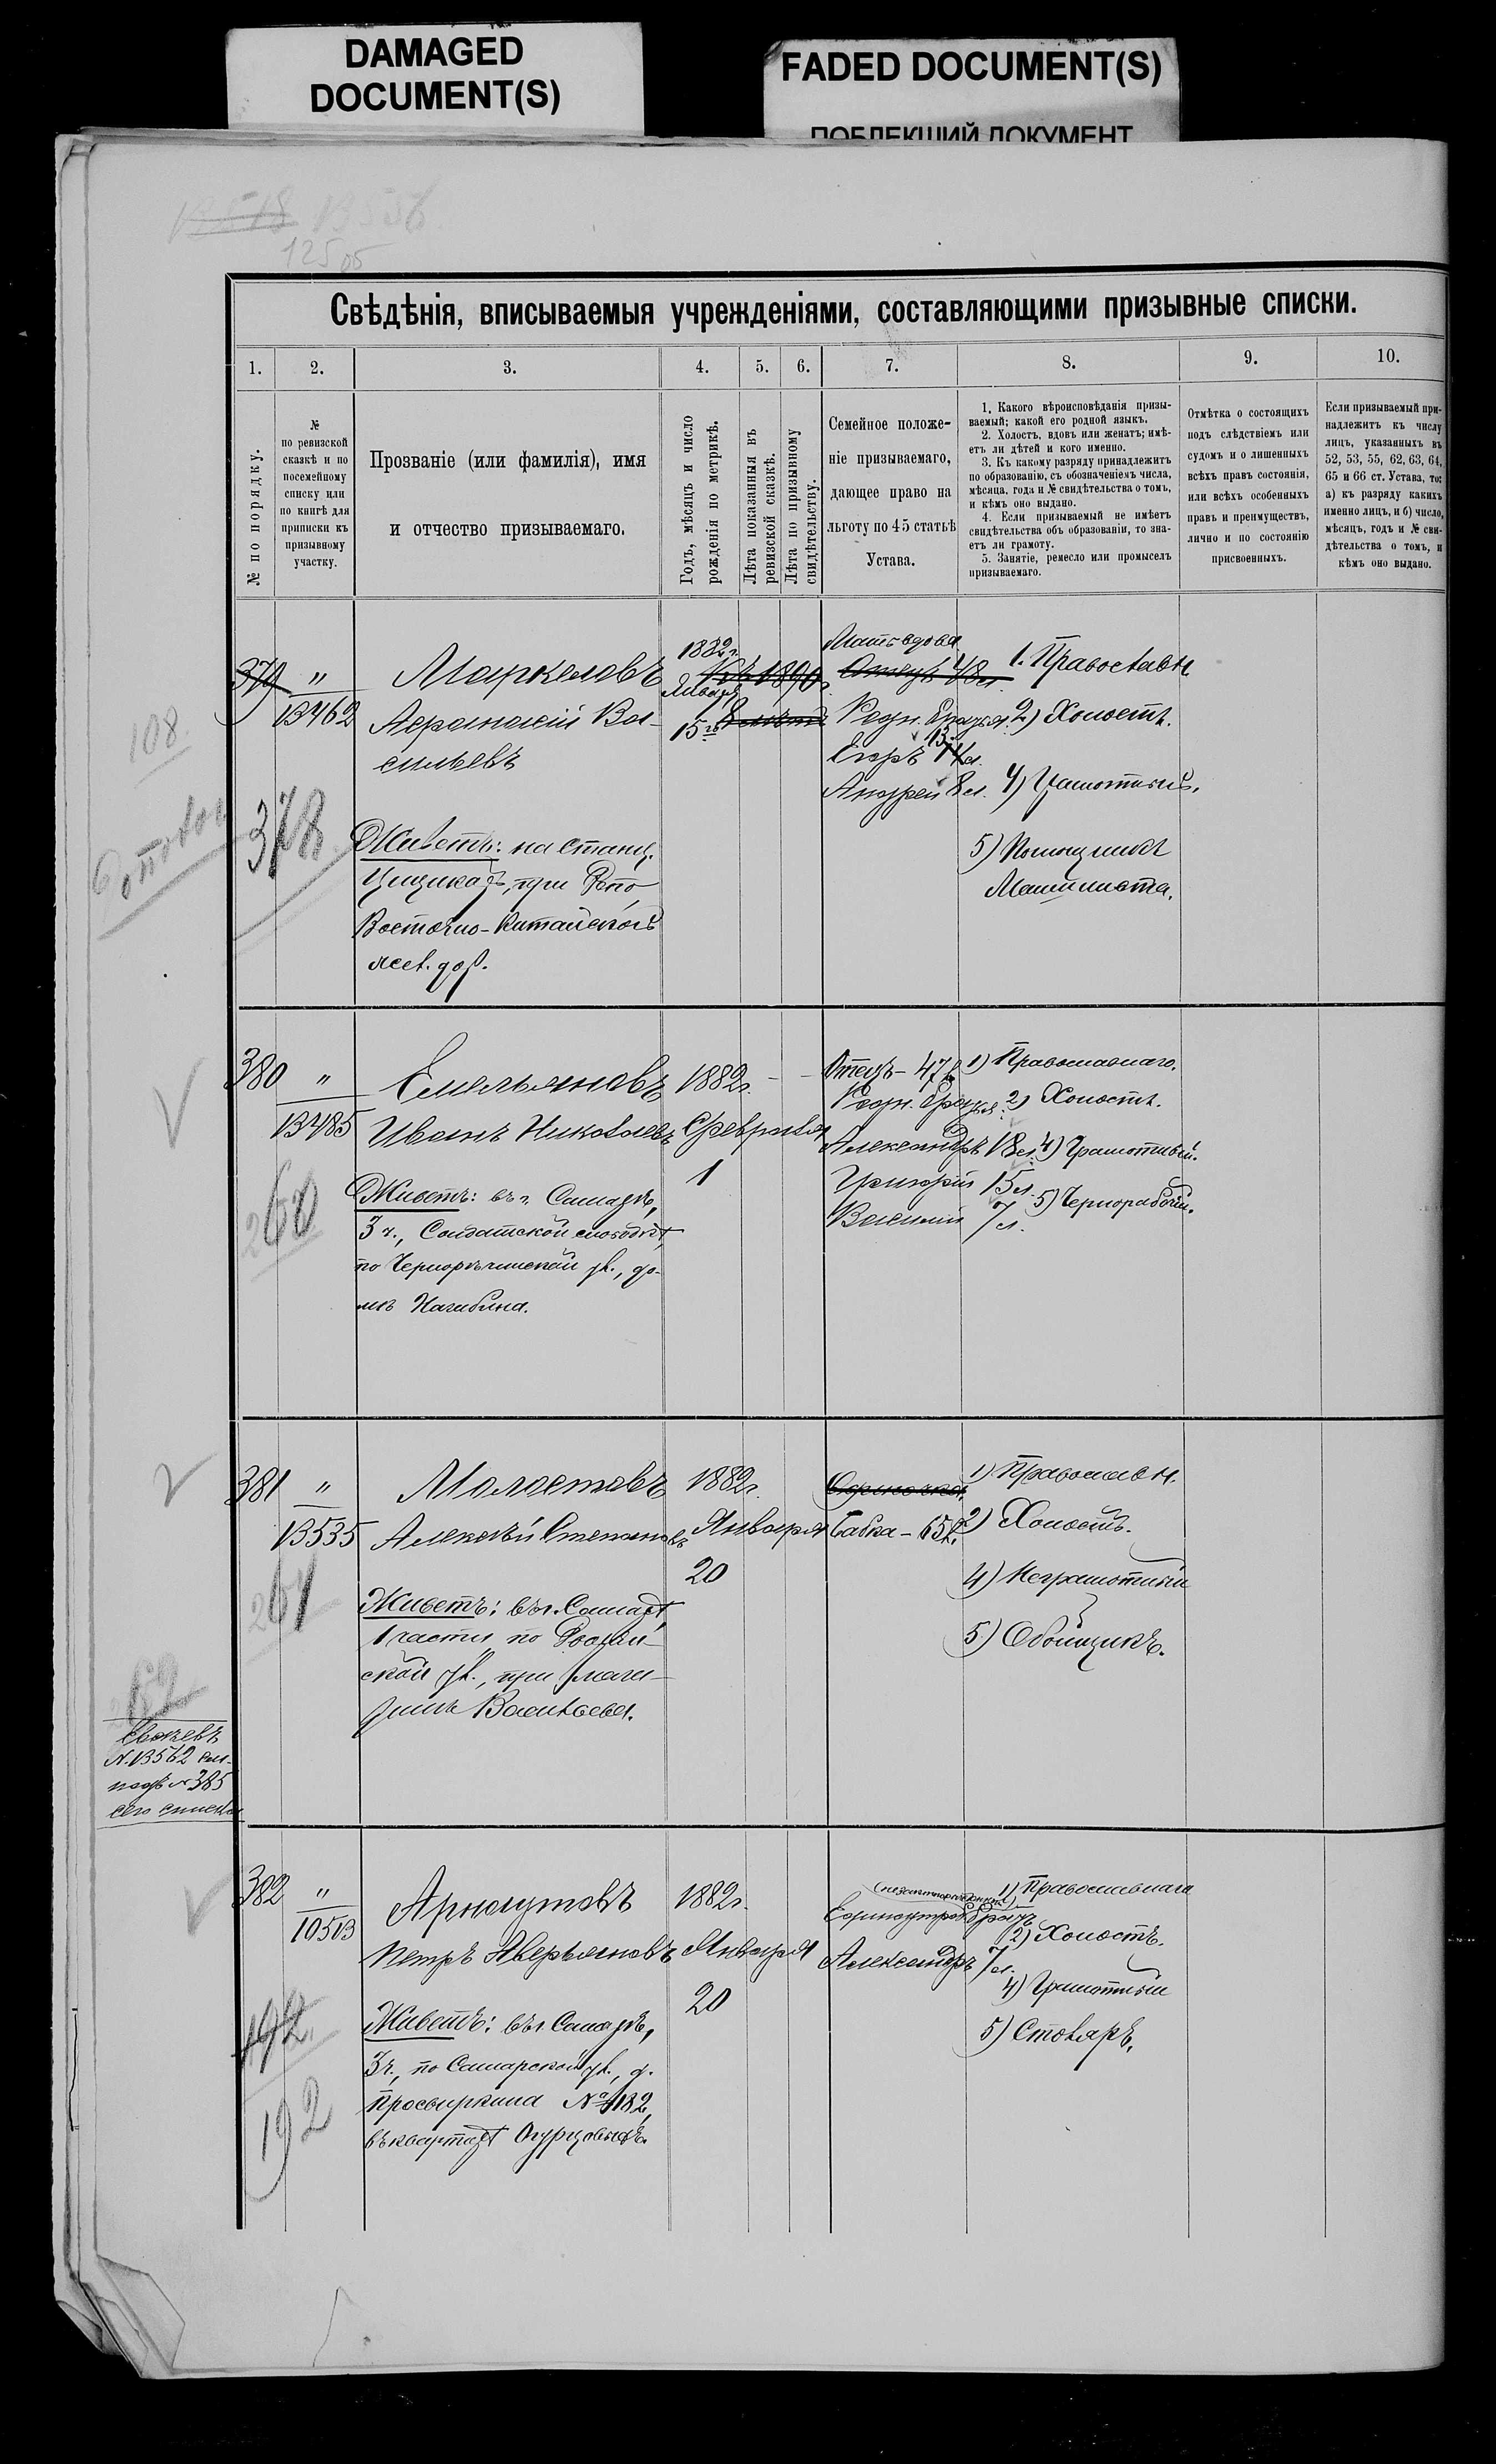 DAMAGED
DOCUMENT(S)
FADED DOCUMENT(S)
ПОБЛЕКШИЙ ДОКУМЕНТ
12505
Свѣдѣнія, вписываемыя учрежденіями, составляющими призывные списки.
1. 2. 3. 4. 5. 6. 7. 8. 9. 10.
№ по порядку.
№
по ревизской
сказкѣ и по
посемейному
списку или
по книгѣ для
приписки къ
призывному
участку.
Прозваніе (или фамилія), имя
и отчество призываемаго.
Годъ, мѣсяцъ и число
рожденія по метрикѣ.
Лѣта показанныя въ
ревизской сказкѣ.
Лѣта по призывному
свидѣтельству.
Семейное положе-
ніе призываемаго,
дающее право на
льготу по 45 статьѣ
Устава.
1. Какого вѣроисповѣданія призы-
ваемый; какой его родной языкъ.
2. Холостъ, вдовъ или женатъ; имѣ-
етъ ли дѣтей и кого именно.
3. Къ какому разряду принадлежитъ
по образованію, съ обозначеніемъ числа,
мѣсяца, года и № свидѣтельства о томъ,
и кѣмъ оно выдано.
4. Если призываемый не имѣетъ
свидѣтельства объ образованіи, то зна-
етъ ли грамоту.
5. Занятіе, ремесло или промыселъ
призываемаго.
Отмѣтка о состоящихъ
подъ слѣдствіемъ или
судомъ и о лишенныхъ
всѣхъ правъ состоянія,
или всѣхъ особенныхъ
правъ и преимуществъ,
лично и по состоянію
присвоенныхъ.
Если призываемый при-
надлежитъ къ числу
лицъ, указанныхъ въ
52, 53, 55, 62, 63, 64,
65 и 66 ст. Устава, то:
а) къ разряду какихъ
именно лицъ, и б) число,
мѣсяцъ, годъ и № сви-
дѣтельства о томъ, и
кѣмъ оно выдано.
379 "
13462
108
378
Маркеловъ
Афанасій Ва-
сильевъ
Живетъ: на станц.
Цицикаръ, при Депо
Восточно-Китайской
жел. дор.
1882г.
Января
15го
Мать вдова
Отецъ 48л.
Родн. братья:
Егоръ 13л.
Андрей 8л.
1. Православн.
2) Холостъ.
4) Грамотный.
5) Помощникъ
Машиниста.
380 "
13485
260
Емельяновъ
Иванъ Николаевъ
Живетъ: въ г. Самарѣ,
3 ч., Солдатской слободкѣ,
по Чернорѣчинской ул., до-
мъ Нагибина.
1882г.
Февраля
1
Отецъ - 47л.
Родн. братья:
Александръ 18л.
Григорій 15л.
Василій 7л.
1) Православнаго.
2) Холостъ.
4) Грамотный.
5) Чернорабочій.
381 "
13535
261
Малостовъ
Алексѣй Степановъ
Живетъ: въ г. Самарѣ
1 части, по
ской ул., при мага-
зинѣ Васильева.
1882г.
Января
20
Одиночка.
Бабка - 65л.
1) Православн.
2) Холостъ.
4) Неграмотный
5) Обойщикъ.
262
N.13562
подъ № 385
сего списка
382 "
10503
192
192
Арнаутовъ
Петръ Аверьяновъ
Живетъ: въ г. Самарѣ,
3ч., по Самарской ул., д.
Просвиркина № 182,
въ квартирѣ Огурцовыхъ.
1882г.
Января
20
(незаконнорожденный)
Единоутроб. братъ
Александръ 7л.
1) Православнаго
2) Холостъ.
4) Грамотный
5) Столяръ.